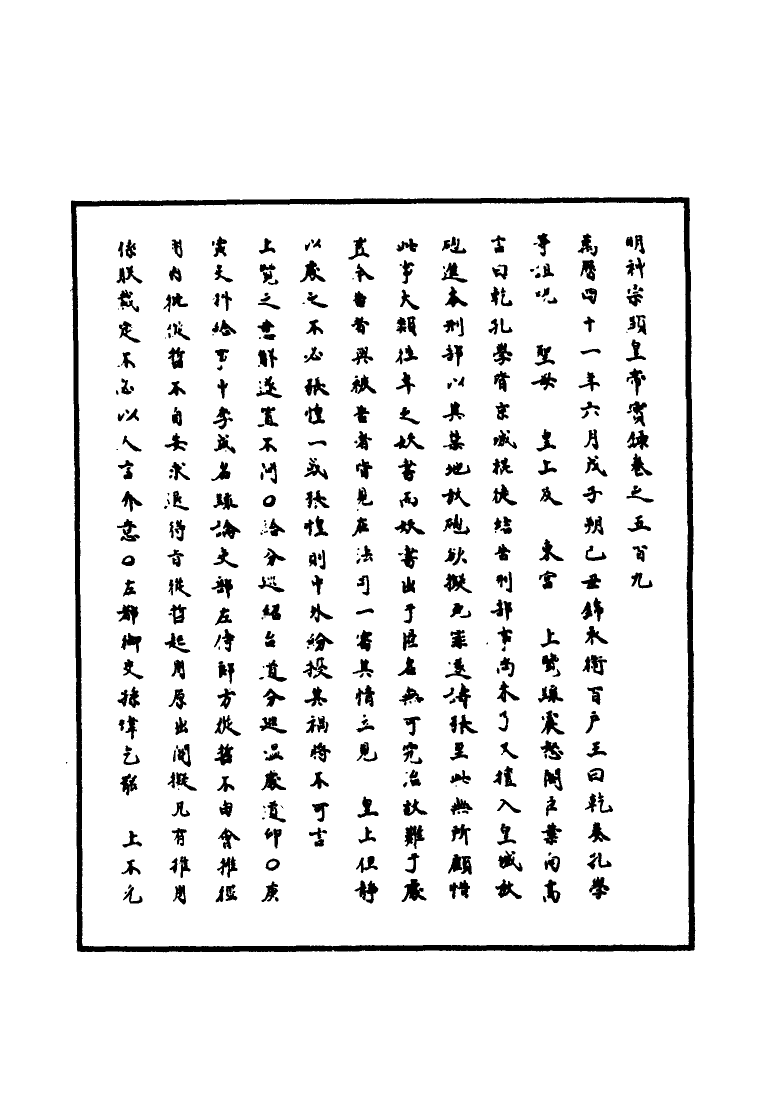 明神宗顯皇帝實錄卷之五百九
萬曆四十一年六月戊子朔己丑錦衣衛百戶王曰乾奏孔學
等詛咒　聖母　皇上及　東宮　上覽疏震怒閣臣葉向高
言曰乾孔學皆京城棍徒結告刑部事尚未了又擅入皇城放
砲進本刑部以其禁地放砲欲擬死罪遂譸張至此無所顧惜
此事大類往年之妖書而妖書出于匿名無可究治故難于處
置今告者與被告者皆見在法司一審其情立見　皇上但靜
以處之不必張惶一或張惶則中外紛擾其禍將不可言
上覽之意解遂置不問○給分巡紹台道分巡溫處道印○庚
寅天科給事中李成名疏論吏部左侍郎方從哲不由會推徑
用內批從哲不自安求退得旨從哲起用原出閣擬凡有推用
係朕裁定不必以人言介意○左都御史孫瑋乞罷　上不允